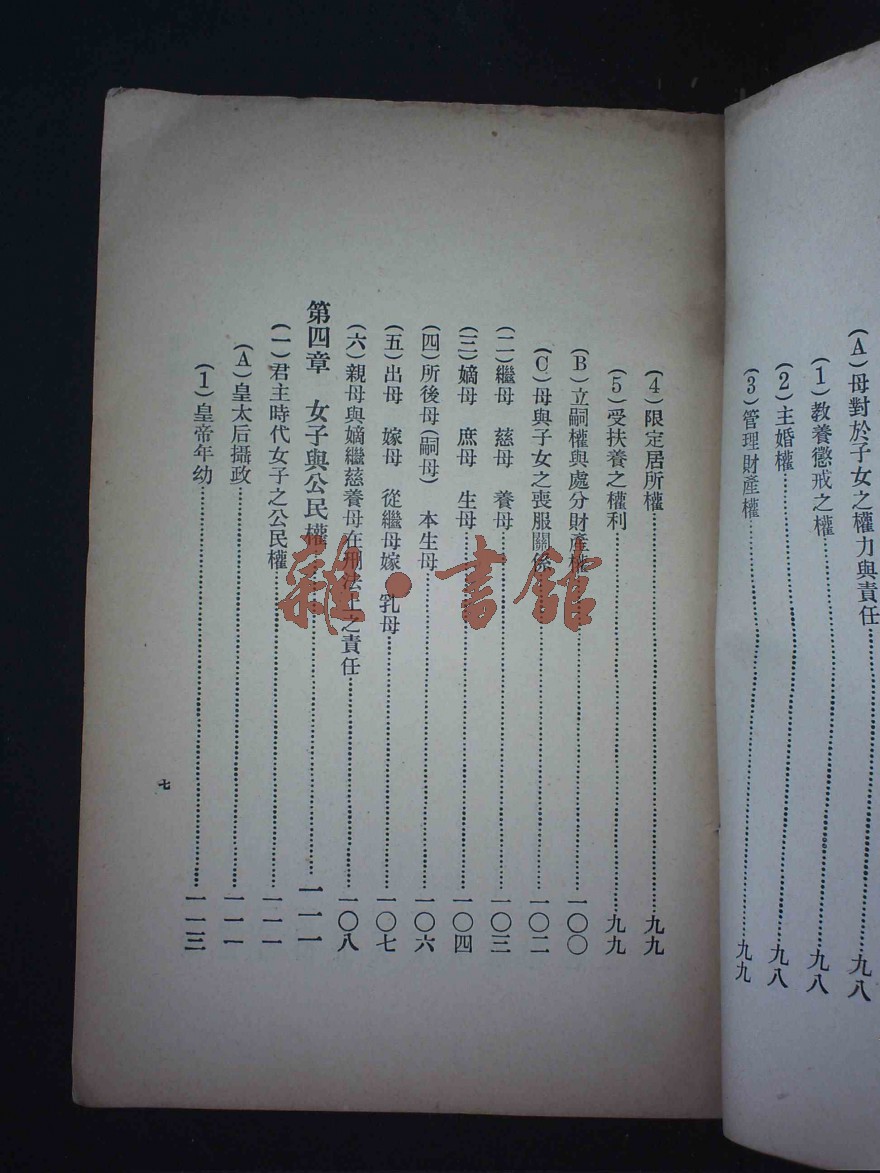 (A)母對於子女之權力與責任……九八
(1)教養懲戒之權……九八
(2)主婚權……九八
(3)管理財產權……九九
(4)限定居所權……九九
(5)受扶養之權利……九九
(B)立嗣權與處分財產權……一〇〇
(C)母與子女之喪服關係……一〇二
(二)繼母 慈母 養母……一〇三
(三)嫡母 庶母 生母……一〇四
(四)所後母(嗣母) 本生母……一〇六
(五)出母 嫁母 從繼母嫁 乳母……一〇七
(六)親母與嫡繼慈養母在刑法上之責任……一〇八
第四章 女子與公民權……一一一
(一)君主時代女子之公民權……一一一
(A)皇太后攝政……一一一
(1)皇帝年幼……一一三
七
雜·書館